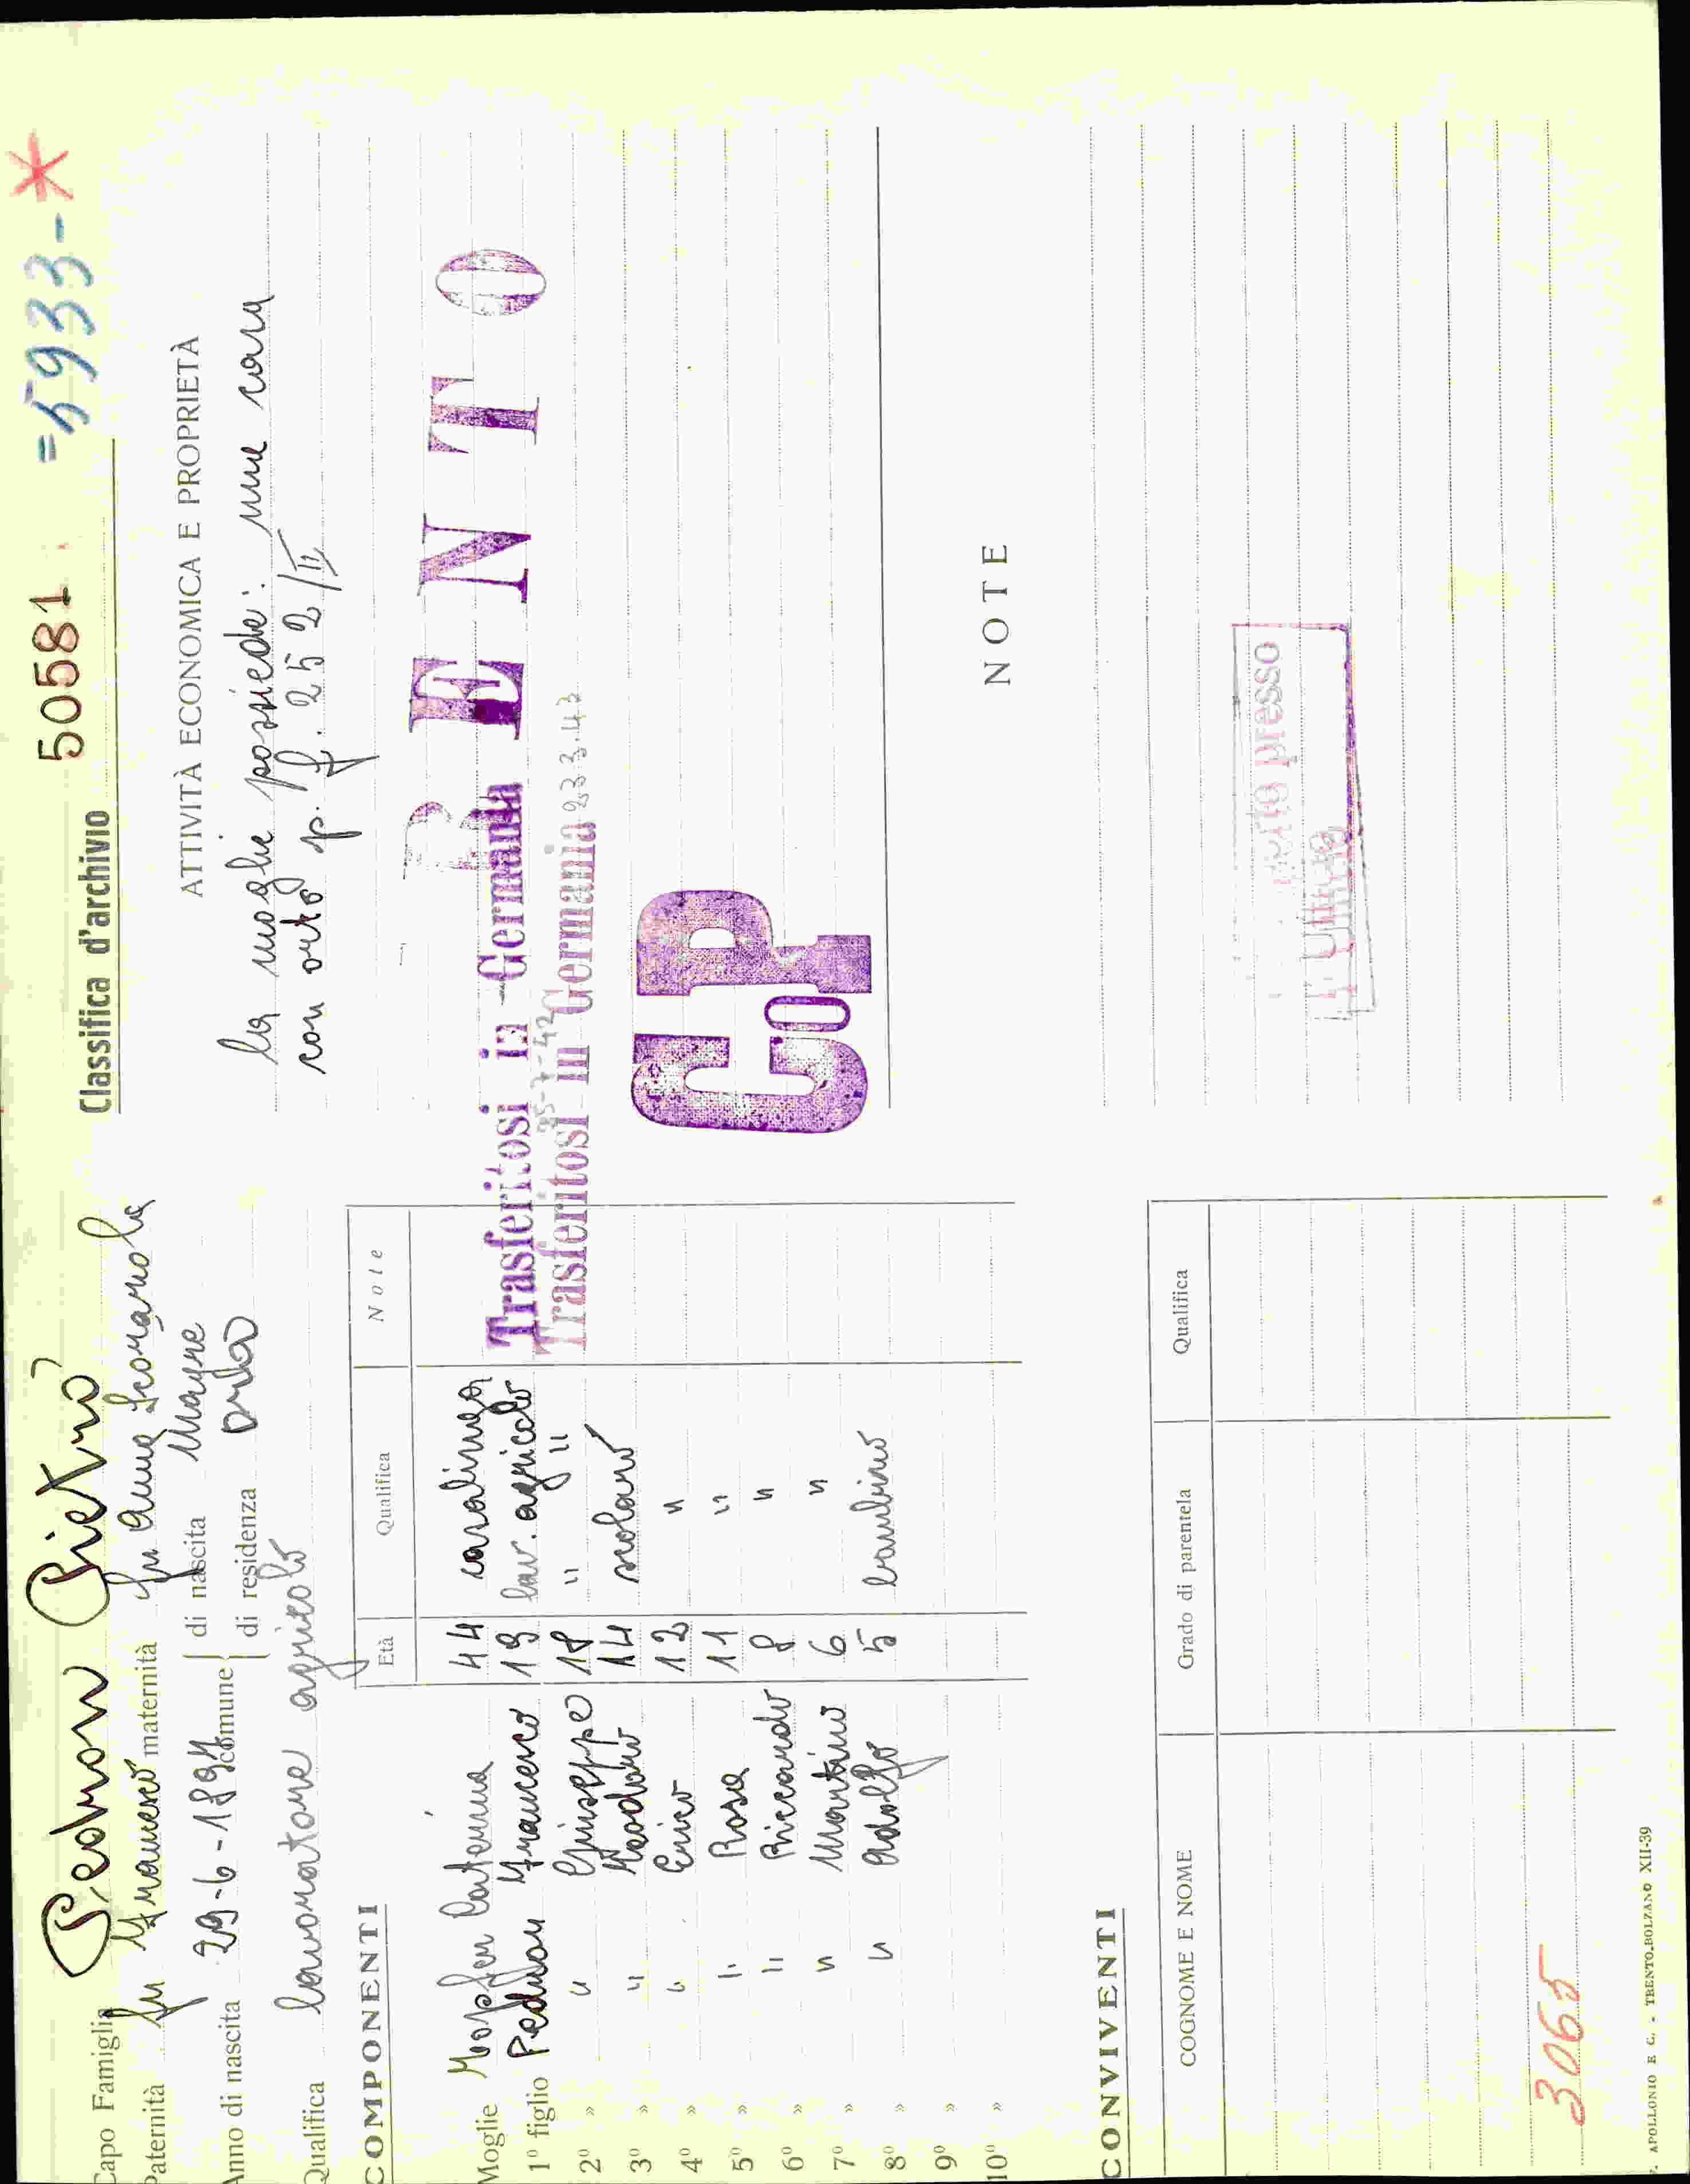 Classifica d'archivio 50581 =5933-*
Capo Famiglia Pedron Pietro
Paternità fu Francesco maternità fu Anna
Anno di nascita 29-6-1894 comune di nascita Magre
di residenza Orlo
Qualifica lavoratore agricolo
COMPONENTI
Età Qualifica Note
Moglie Caterina 44 casalinga
1º figlio Pedron Francesco 19 lav. agricolo
2º » " Giuseppe 18 " "
3º » " Teodoro 14 scolaro
4º » " Enrico 12 "
5º » " Rosa 11 "
6º » " Riccardo 8 "
7º » " Martino 6 "
8º » " Adolfo 5 bambino
9º »
10º »
ATTIVITÀ ECONOMICA E PROPRIETÀ
La moglie possiede: una casa
con orto p. f. 252/II
RENTO
Trasferitosi in Germania
Trasferitosi in Germania 23.3.43
COP
NOTE
presso
CONVIVENTI
COGNOME E NOME Grado di parentela Qualifica
3065
APOLLONIO E C. - TRENTO-BOLZANO XII-39